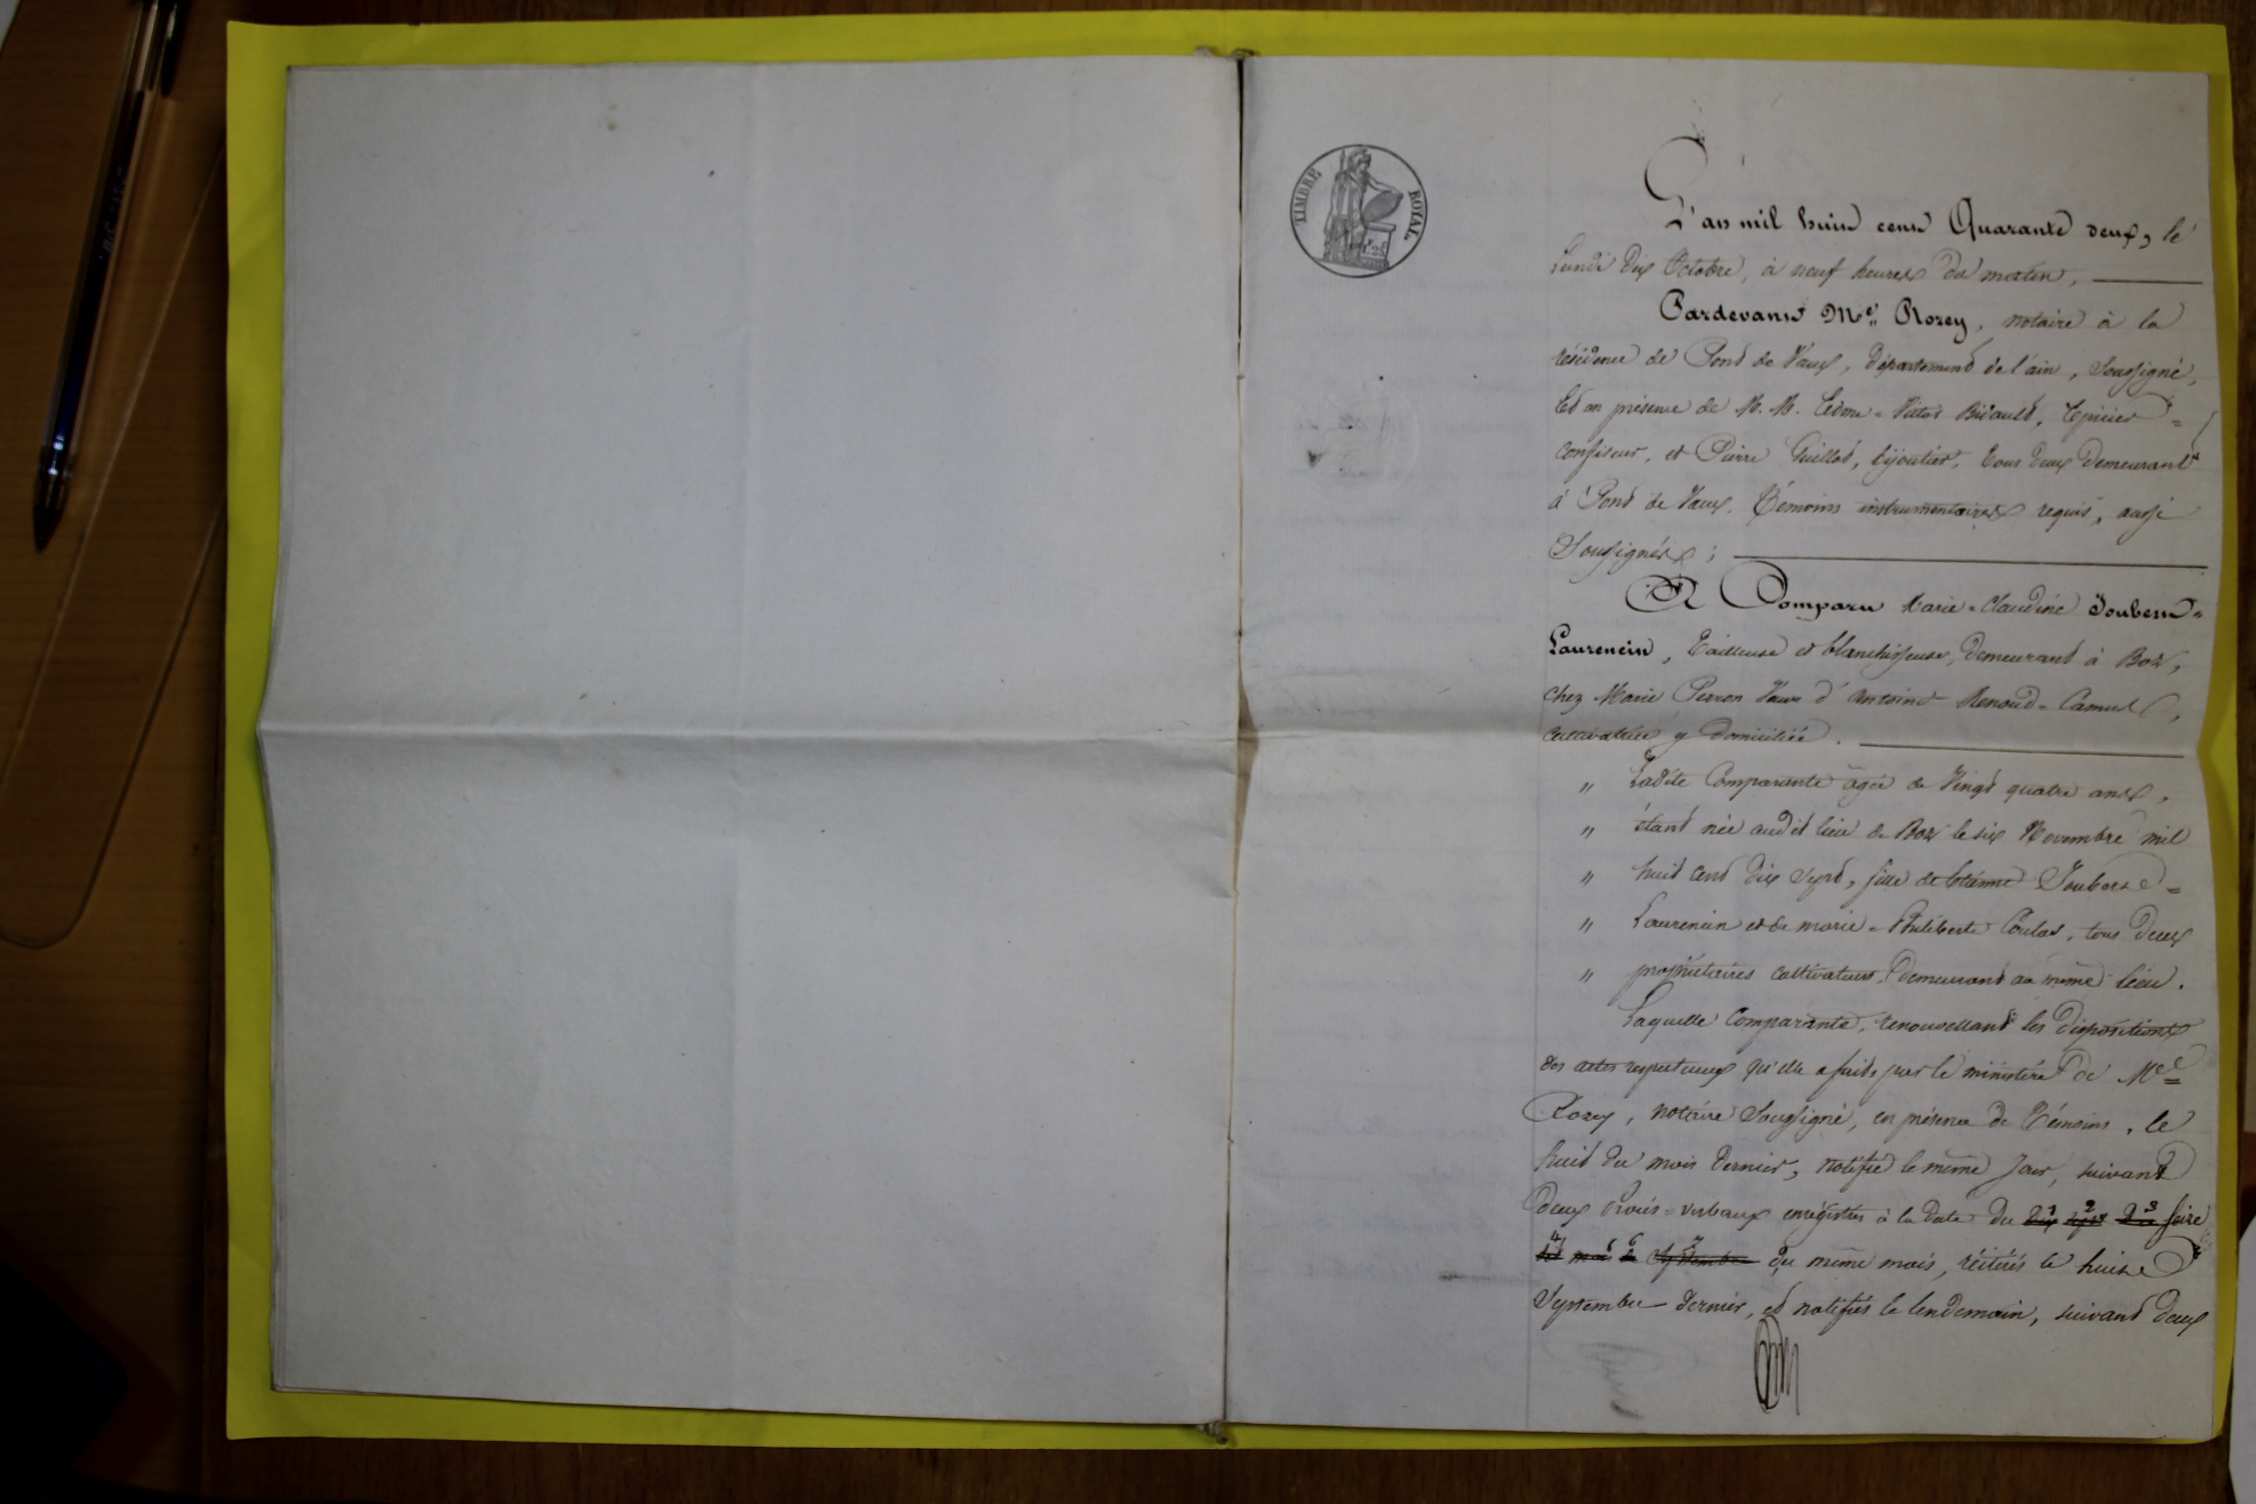 TIMBRE ROYAL
L'an mil huit cent Quarante deux, le
Lundi dix Octobre, à neuf heures du matin,
Pardevant Me. Rozey, notaire à la
résidence de Pont de Vaux, département de l'ain, Soussigné,
Et en présence de M. M. Edme-Victor Bidault, Epicier=
Confiseur, et Pierre Guillot, bijoutier, tous deux demeurant
à Pont de Vaux, Témoins instrumentaires requis, aussi
Soussignés;
A Comparu Marie-Claudine Joubert=
Laurencin, Tailleuse et blanchisseuse, demeurant à Boz,
chez Marie Perron Veuve d'antoine Renoud-Camus,
cultivatrice y domiciliée.
" Ladite Comparante âgée de Vingt quatre ans,
" étant née audit lieu de Boz le six Novembre mil
" huit cent dix sept, fille de Joubert=
" Laurencin et de marie-Philiberte Coulas, tous deux
" propriétaires cultivateurs, demeurant au même lieu.
Laquelle Comparante, renouvellant les dispositions
des actes respectueux qu'elle a faits par le ministère de Me
Rozey, notaire Soussigné, en présence de Témoins, le
huit du mois dernier, notifié le même jour, suivant
deux Procès-verbaux enrégistrés à la date du dix sept du seize
dit mois de Septembre du même mois, réitérés le huit
Septembre dernier, et notifiés le lendemain, suivant deux